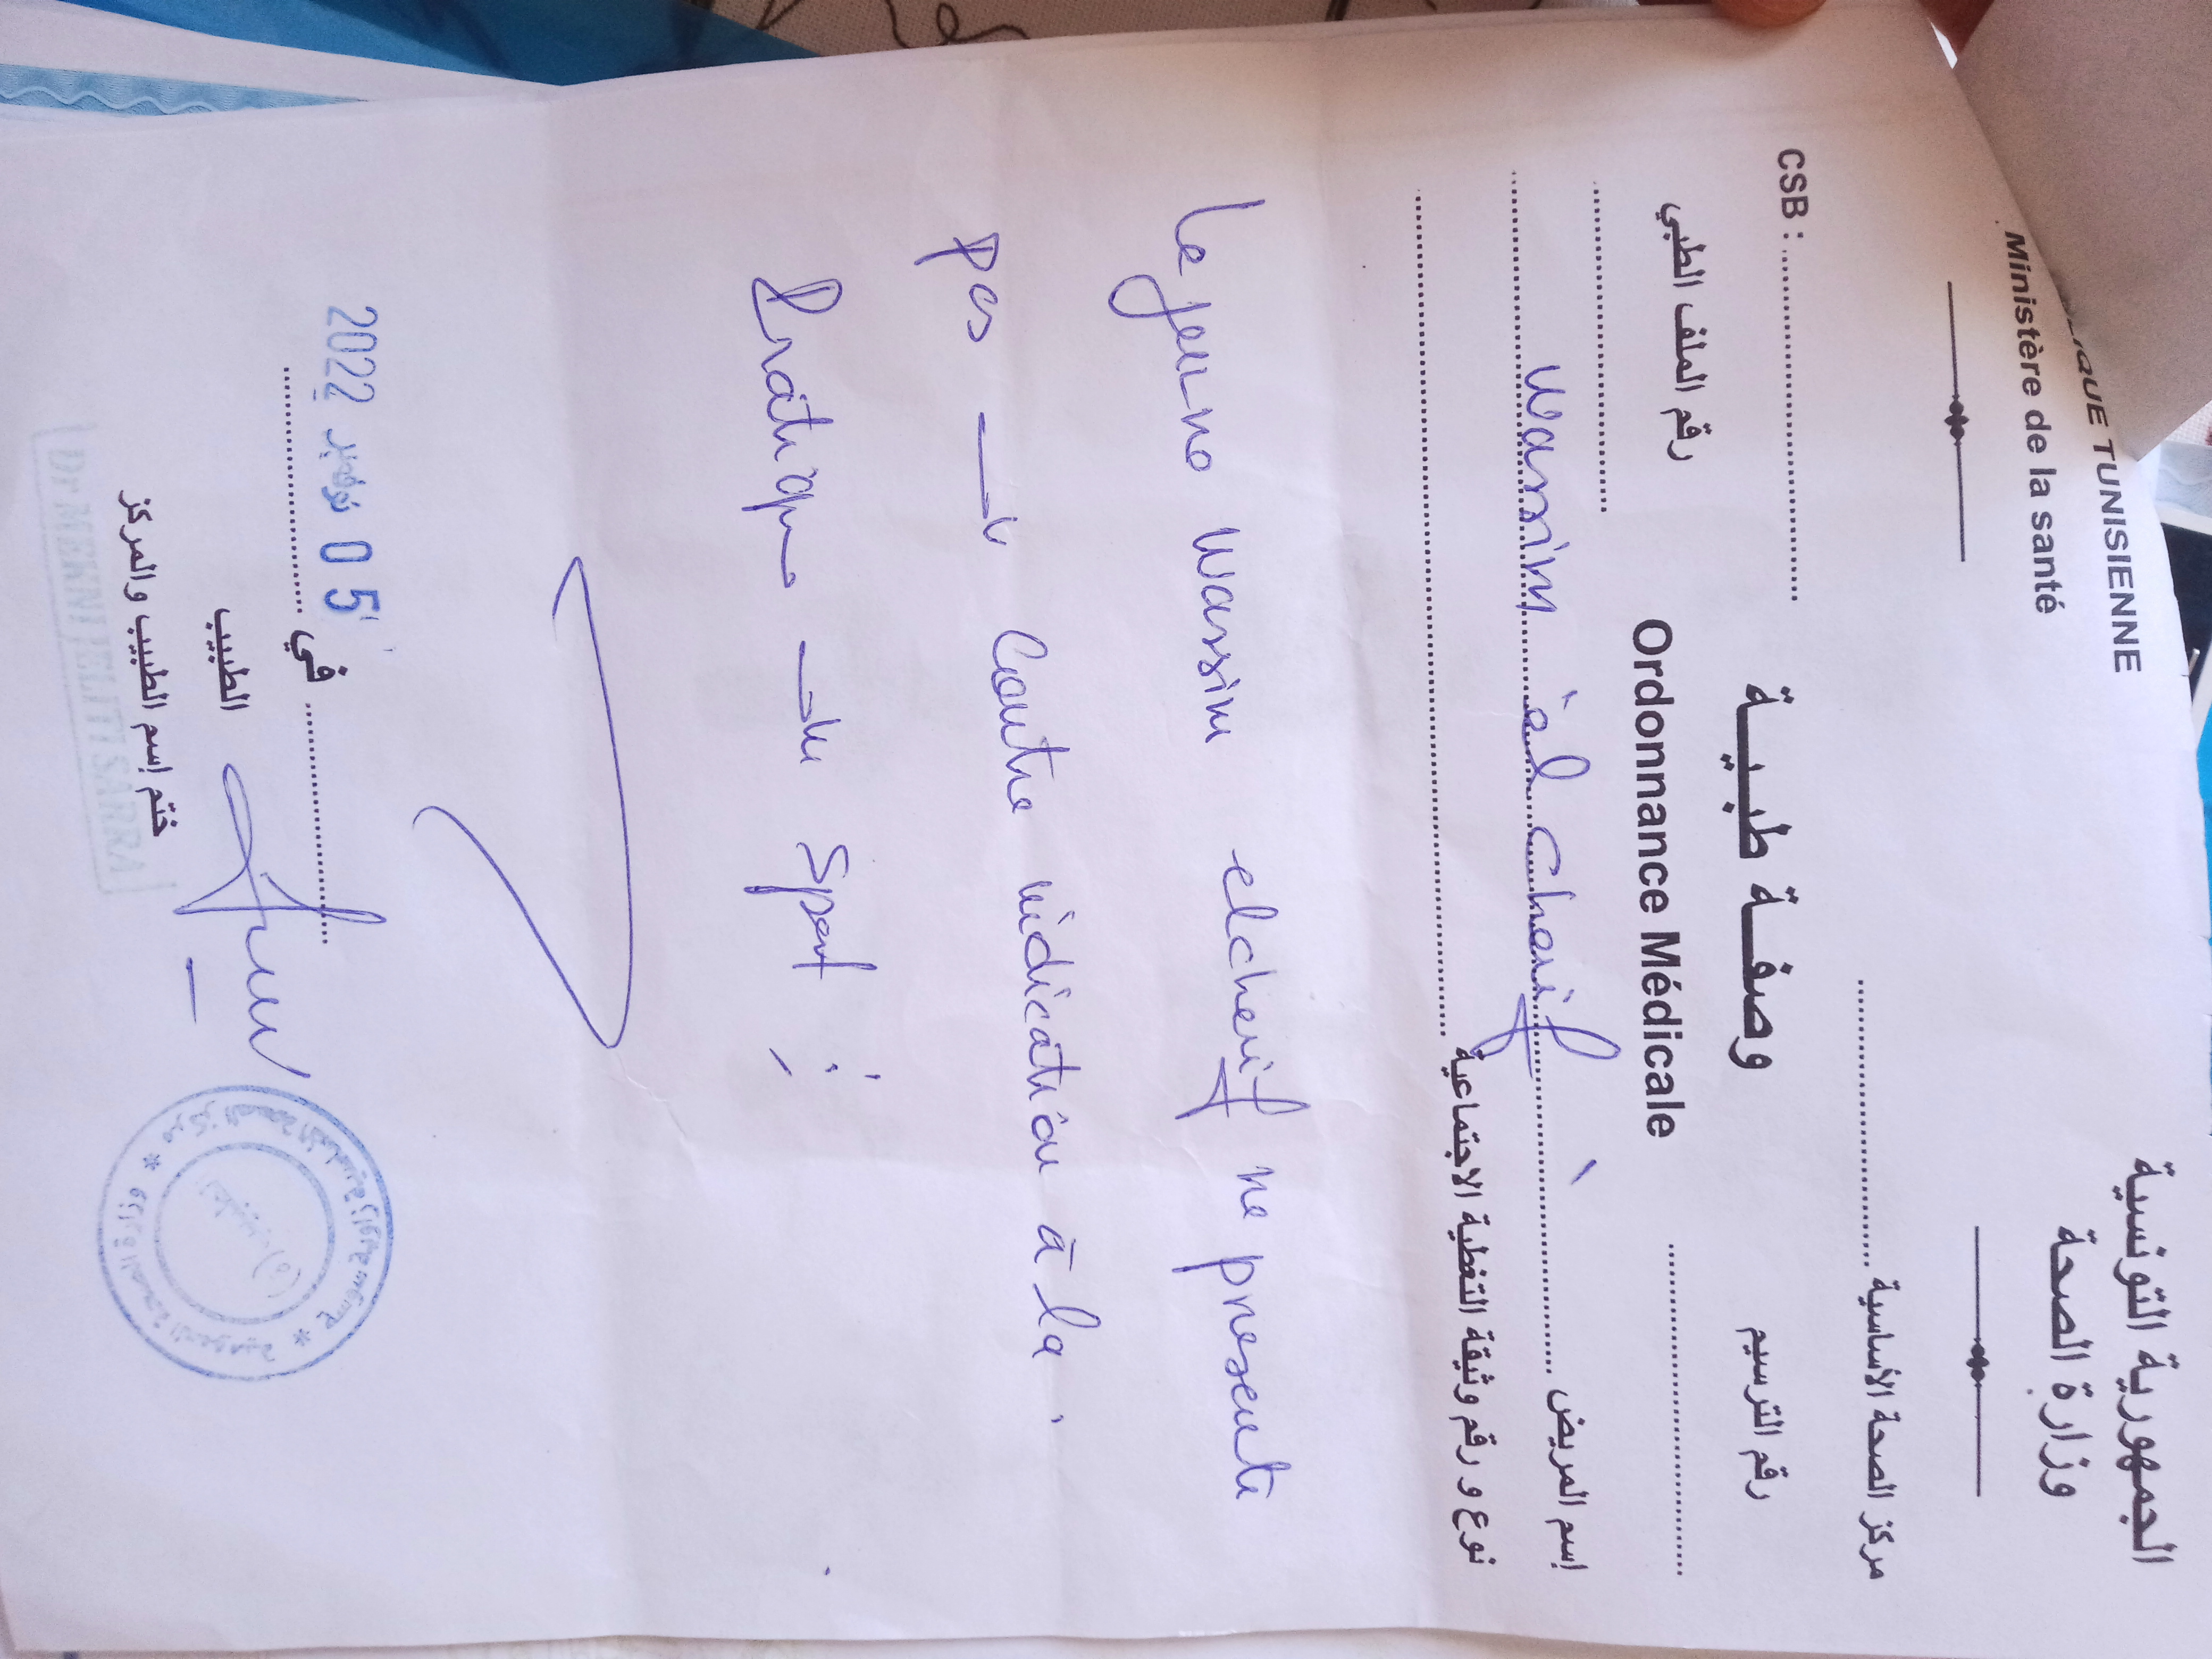 الجمهورية التونسية
وزارة الصحة
IQUE TUNISIENNE
Ministère de la santé
مركز الصحة الأساسية
CSB :
وصفة طبية
Ordonnance Médicale
رقم الترسيم
رقم الملف الطبي
إسم المريض
wassim el cherif
نوع و رقم وثيقة التغطية الاجتماعية
Le jeune wassim elcherif ne presente
pas de contre indication à la
Pratique du sport
في
05 نوفمبر 2022
الطبيب
ختم إسم الطبيب والمركز
Dr MEKNI JELITI SARRA